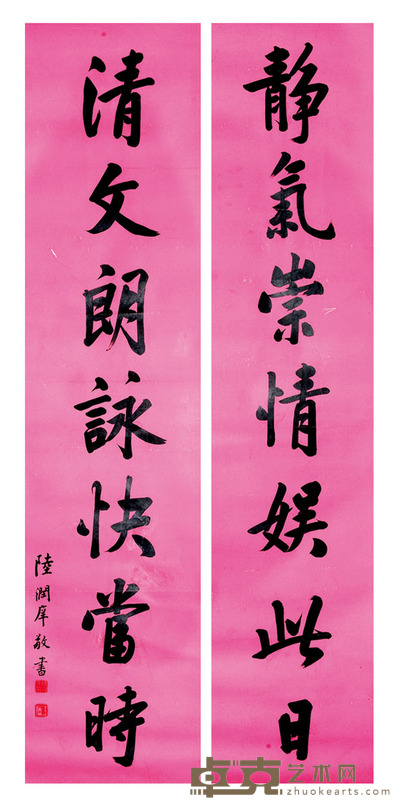 静氣崇情娱此日
清文朗詠快當時
陸潤庠敬書
卓克艺术网
zhuokearts.com